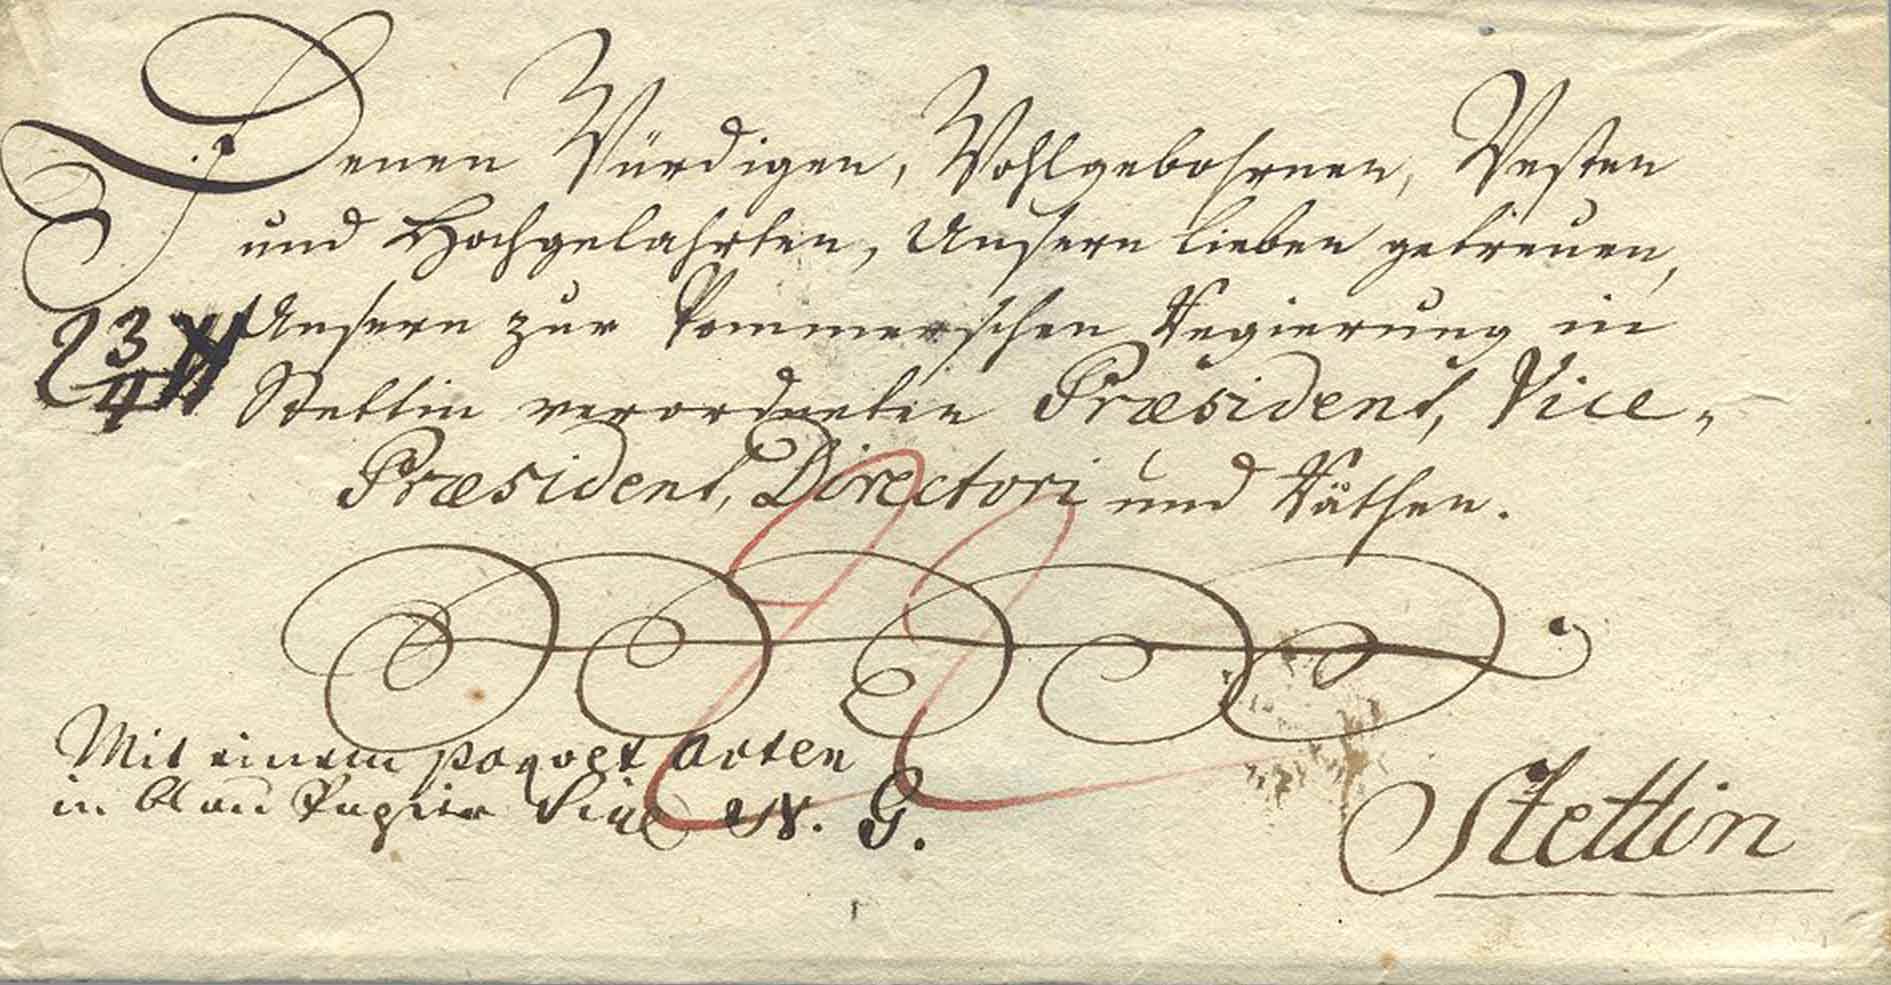 Denen Würdigen, Wohlgebohrnen, Vesten
und Hochgelahrten, Unsern lieben getreuen,
Unsern zur Pommerschen Regierung in
Stettin verordneten Præsident, Vice-
Præsident, Directori und Räthen.
Mit einem paquet Acten
in blau Papier Sig. N. G.
Stettin